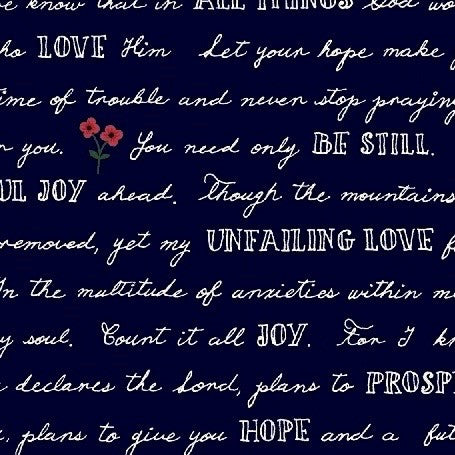 know that in ALL THINGS God
LOVE Him Let your hope make
of trouble and never stop praying
you. You need only BE STILL.
JOY ahead. Though the mountains
removed, yet my UNFAILING LOVE
In the multitude of anxieties within
soul. Count it all JOY. For I
declares the Lord, plans to
plans to give you HOPE and a